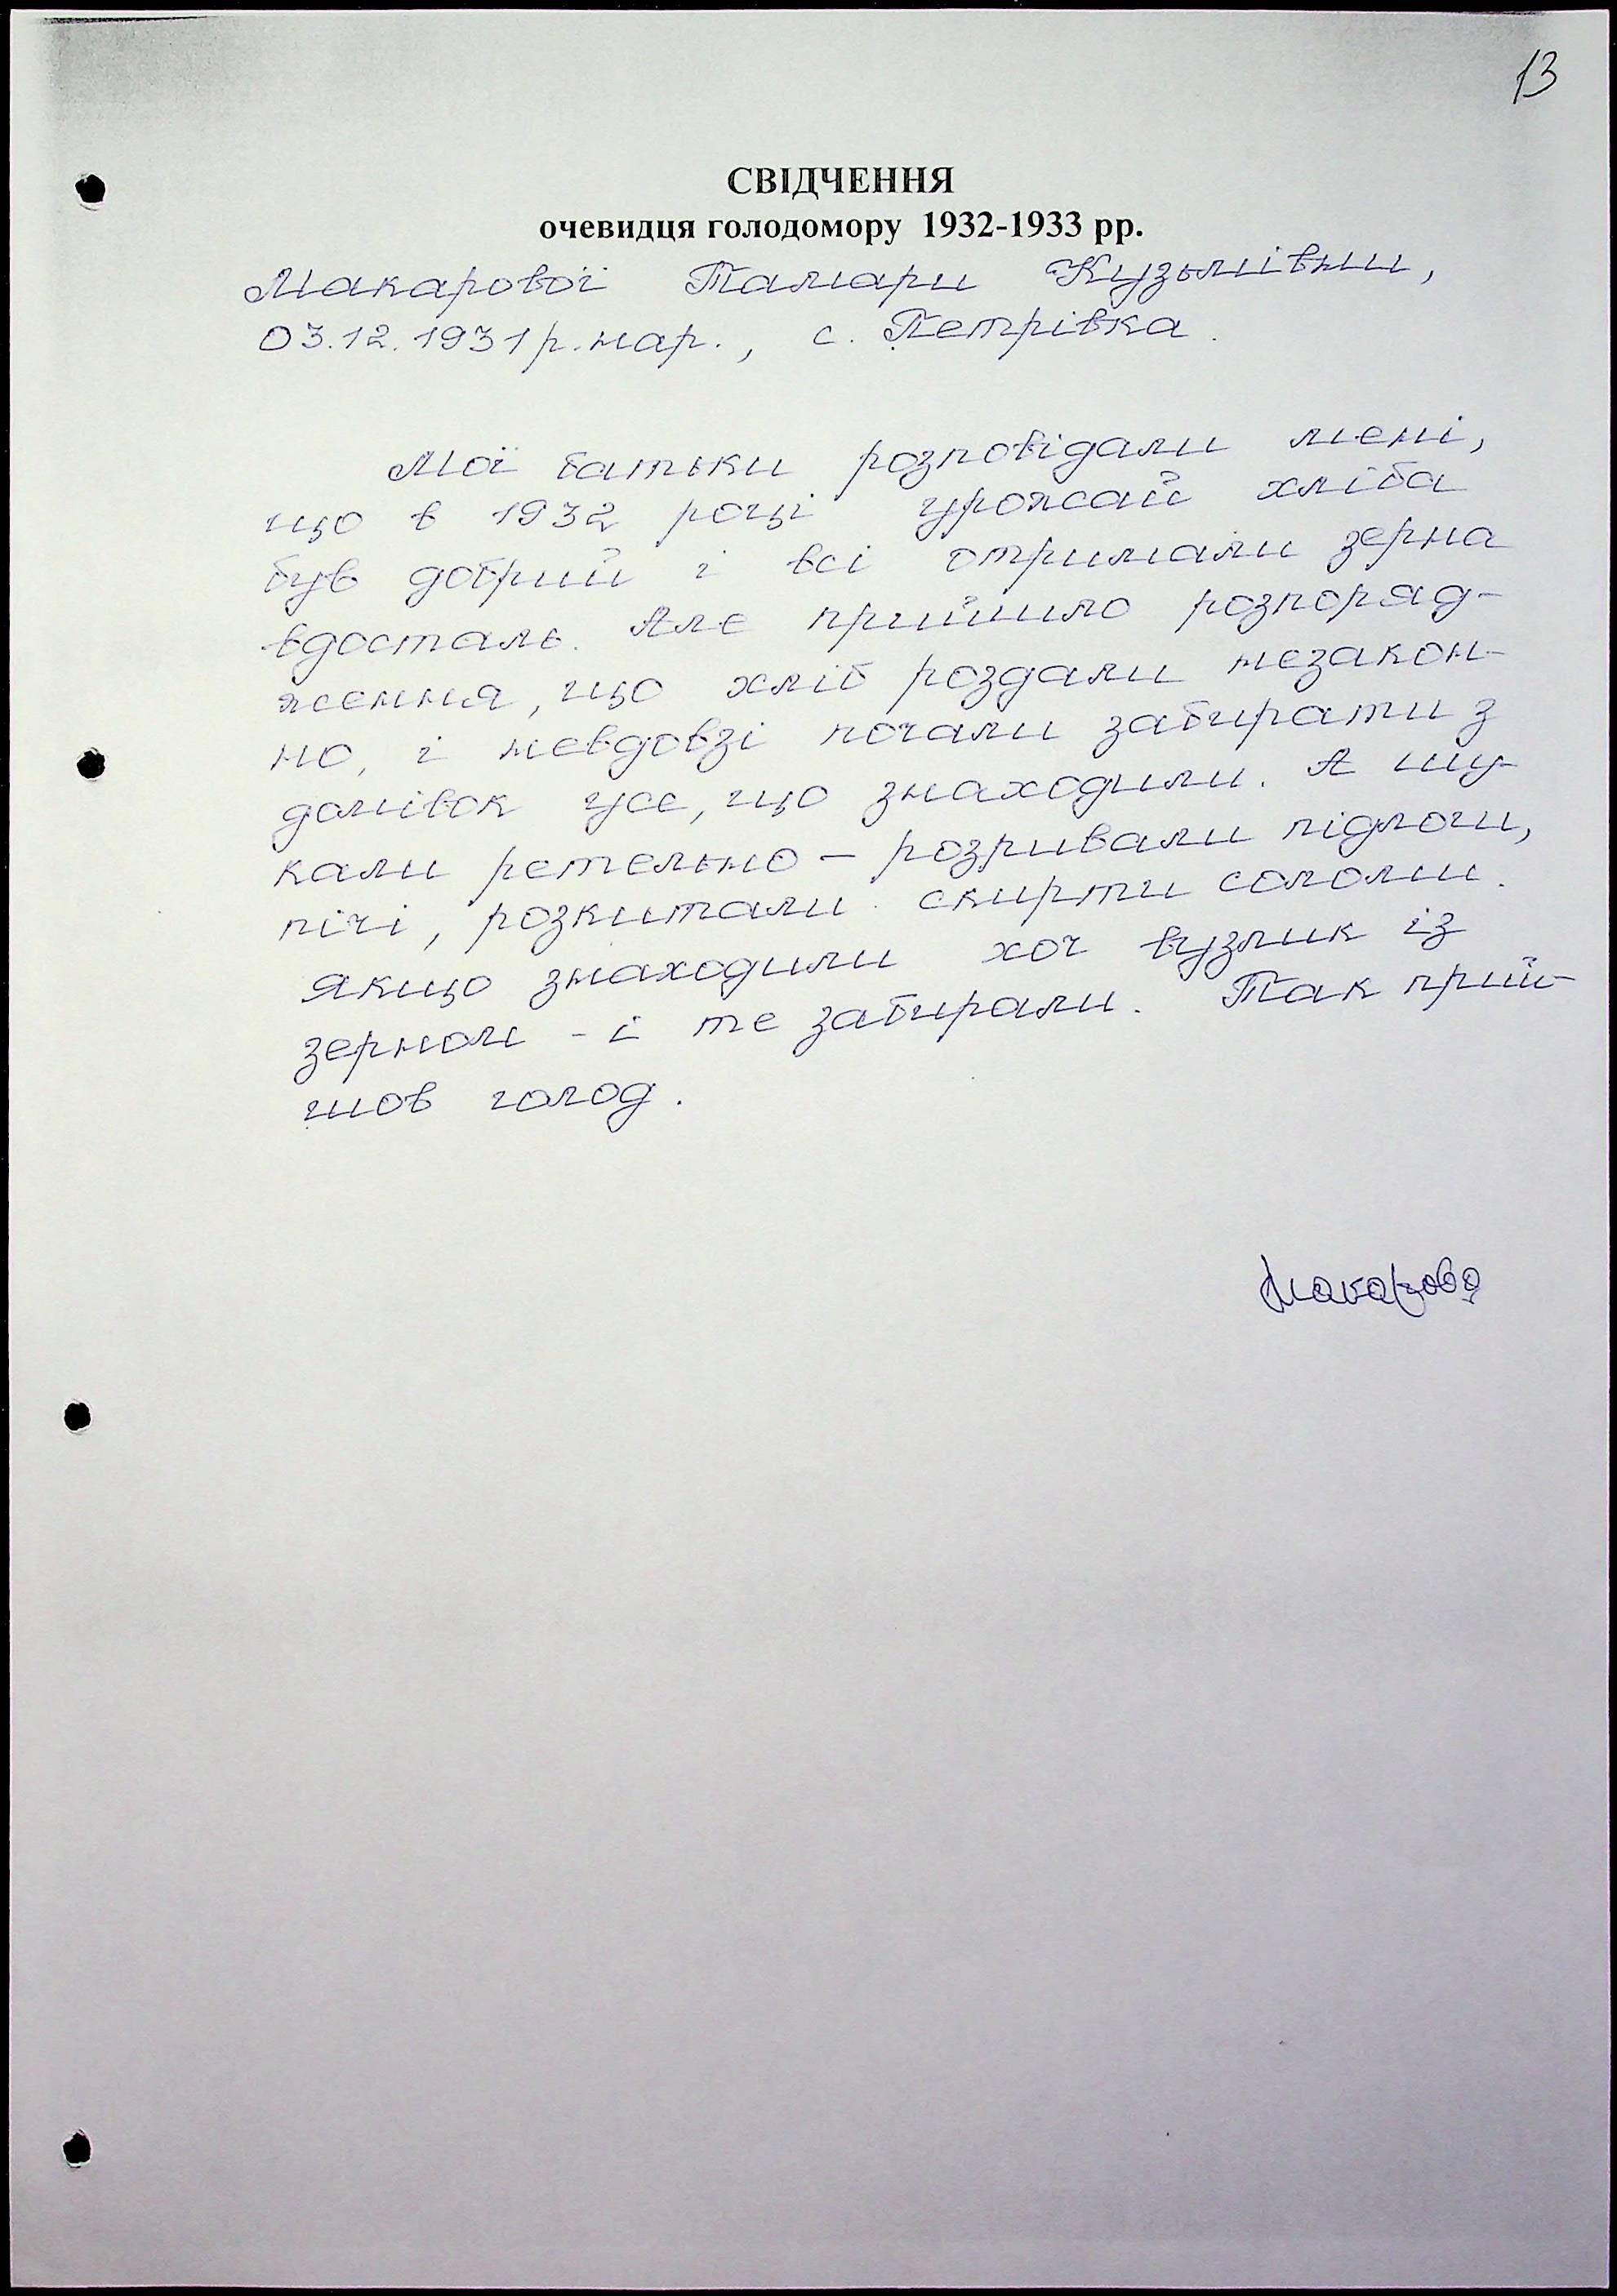 13
СВІДЧЕННЯ
очевидця голодомору 1932-1933 рр.
Макарової Тамари Кузьмівни,
03.12.1931р.нар., с. Петрівка.
Мої батьки розповідали мені,
що в 1932 році урожай хліба
був добрий і всі отримали зерна
вдосталь. Але прийшло розпоряд-
ження, що хліб роздали незакон-
но, і невдовзі почали забирати з
домівок усе, що знаходили. А шу-
кали ретельно – розривали підлоги,
печі, розкитали скирти соломи.
Якщо знаходили хоч вузлик із
зерном - і те забирали. Так прий-
шов голод.
Макарова